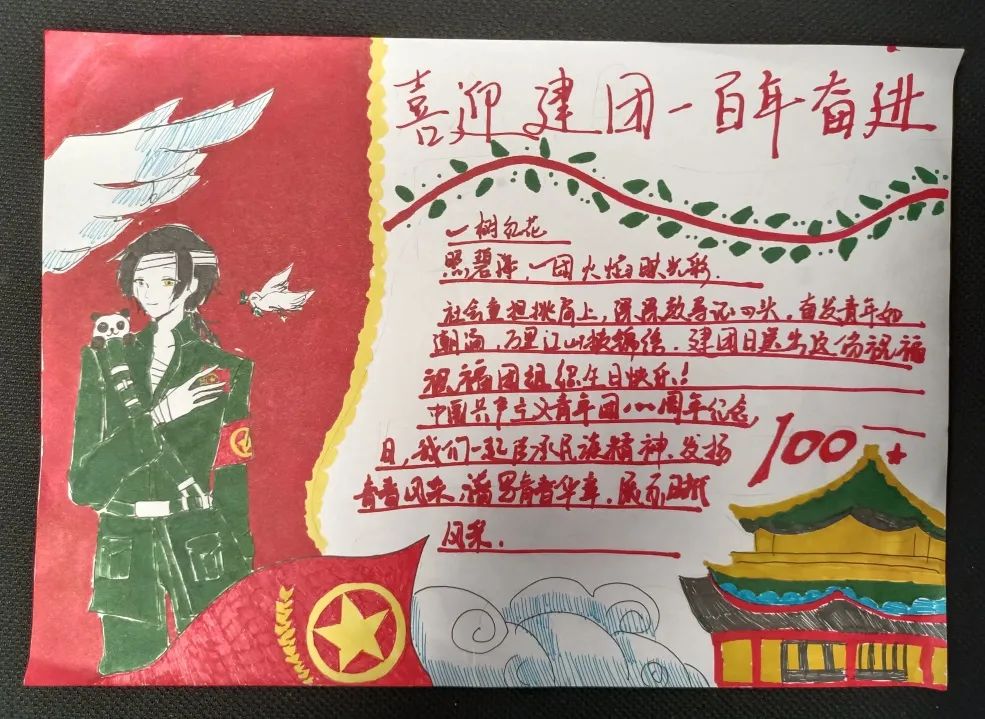 喜迎建团一百年奋进
一树红花
照碧海,一团火焰映光彩.
社会重担挑肩上,照导记四头,奋发青年如
潮涌,万里江山披锦绣.建团日送出这份祝福
祝福团组织生日快乐!
中国共产主义青年团100周年纪念
日,我们一起传承民族精神.发扬
青春风采,谱写青春华章.展示时代
风采.
100